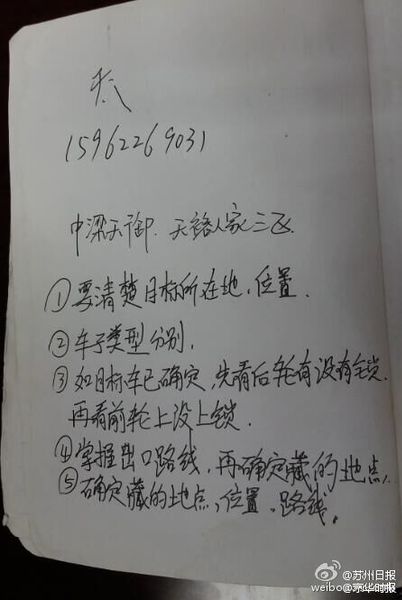 15962269031
中梁天御. 天裕人家三区
①要清楚目标所在地,位置.
②车子类型分别.
③如目标车已确定,先看后轮有没有锁.
再看前轮上没上锁.
④掌握出口路线,再确定藏的地点.
⑤确定藏的地点,位置,路线.
@苏州日报
weibo@京华时报